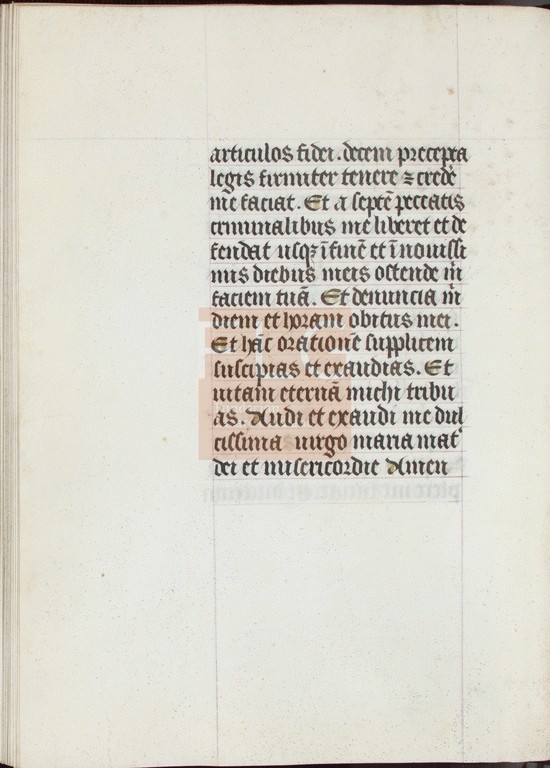 articulos fidei. decem precepta
legis firmiter tenere ⁊ credẽ
me faciat. Et a septẽ peccatis
criminalibus me liberet et de
fendat usqʒ ĩ finẽ et ĩ nouissi
mis diebus meis ostende m̃
faciem tuã. Et denuncia m̃
diem et horam obitus mei.
Et hãc orationẽ supplicem
suscipias et exaudias. Et
uitam eternã michi tribu
as. Audi et exaudi me dul
cissima uirgo maria mat᷑
dei et misericordie Amen